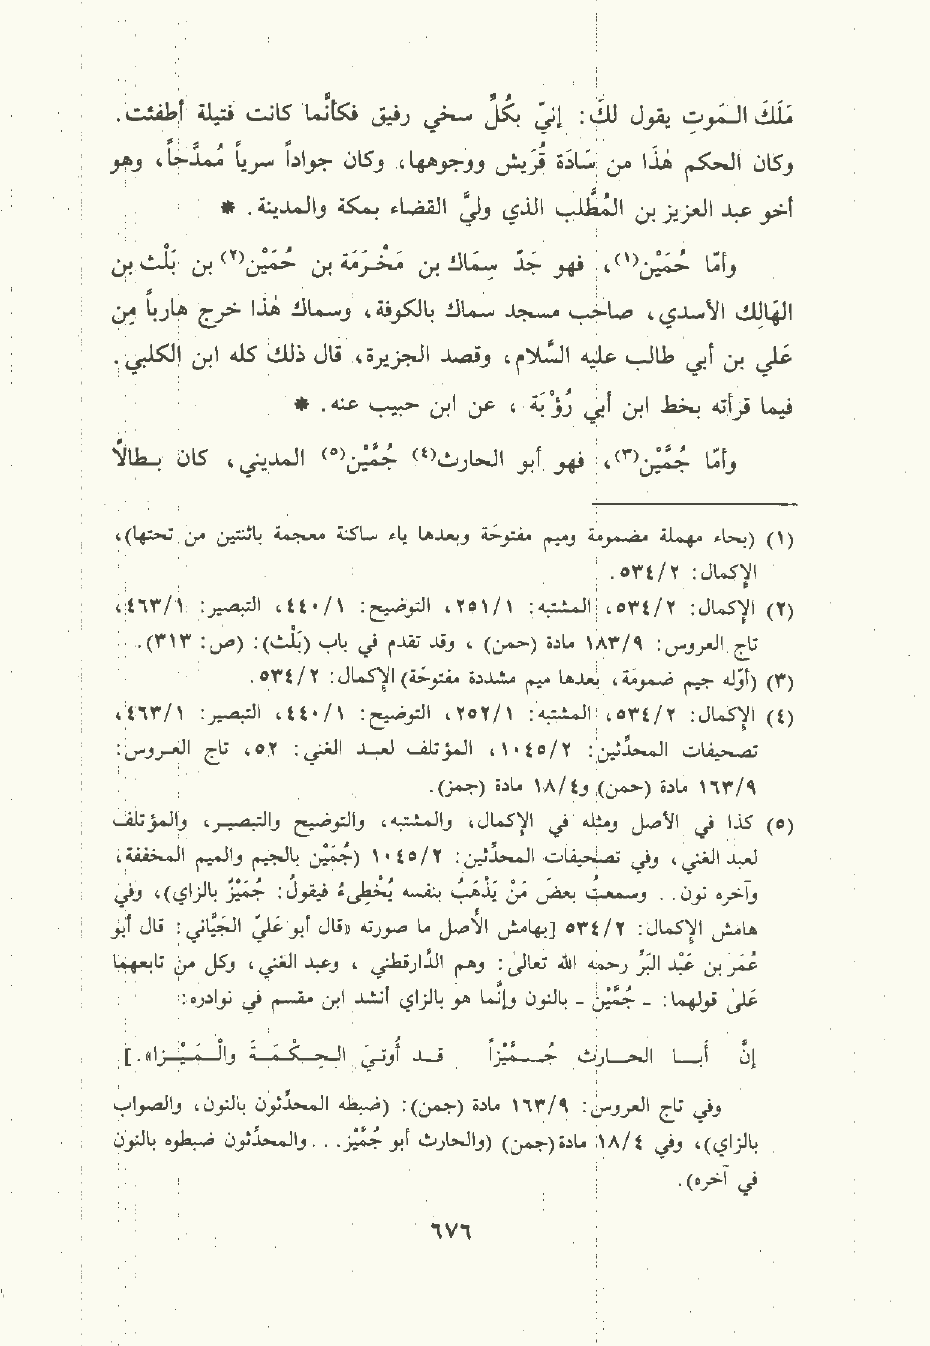 مَلَكَ الـمَوتِ يقول لكَ: إنيّ بكُلِّ سخي رفيق فكأنَّما كانت فتيلة أُطفئت.
وكان الحكم هَذا من سَادَة قُرَيش ووجوهها، وكان جواداً سرياً مُمدَّحاً، وهو
أخو عبد العزيز بن المُطَّلب الذي وليَّ القضاء بمكة والمدينة. *
وأمّا حُمَيْن(١)، فهو جَدّ سِمَاك بن مَخْرَمَة بن حُمَيْن(٢) بن بَلْث بن
الهَالِك الأسدي، صاحب مسجد سماك بالكوفة، وسماك هَذا خرج هارباً مِن
عَلي بن أبي طالب عليه السَّلام، وقصد الجزيرة، قال ذلك كله ابن الكلبي.
فيما قرأته بخط ابن أبي رُؤْبَة ، عن ابن حبيب عنه. *
وأمّا جُمَّيْن(٣)، فهو أبو الحارث(٤) جُمَّيْن(٥) المديني، كان بـطالاً
(١) (بحاء مهملة مضمومة وميم مفتوحَة وبعدها ياء ساكنة معجمة باثنتين من تحتها)،
الإكمال: ٥٣٤/٢.
(٢) الإكمال: ٥٣٤/٢، المشتبه: ٢٥١/١، التوضيح: ٤٤٠/١، التبصير: ٤٦٣/١،
تاج العروس: ١٨٣/٩ مادة (حمن) ، وقد تقدم في باب (بَلْث): (ص: ٣١٣).
(٣) (أوّله جيم ضمومَة، بعدها ميم مشددة مفتوحَة) الإكمال: ٥٣٤/٢.
(٤) الإكمال: ٥٣٤/٢، المشتبه: ٢٥٢/١، التوضيح: ٤٤٠/١، التبصير: ٤٦٣/١،
تصحيفات المحدِّثين: ١٠٤٥/٢، المؤتلف لعبـد الغني: ٥٢، تاج العـروس:
١٦٣/٩ مادة (حمن) و١٨/٤ مادة (جمز).
(٥) كذا في الأصل ومثله في الإكمال، والمشتبه، والتوضيح والتبصيـر، والمؤتلف
لعبد الغني، وفي تصحيفات المحدِّثين: ١٠٤٥/٢ (جُمَيْن بالجيم والميم المخففة،
وآخره نون.. وسمعتُ بعضَ مَنْ يَذْهَبُ بنفسه يُخْطِىءُ فيقولُ: جُمَيْزُ بالزاي)، وفي
هامش الإكمال: ٥٣٤/٢ [بهامش الأصل ما صورته «قال أبو عَليّ الجَيَّاني: قال أبو
عُمَر بن عَبْد البَرِّ رحمه الله تعالى: وهم الدَّارقطني ، وعبد الغني، وكل من تابعهما
عَلىٰ قولهما: ـ جُمَّيْن ـ بالنون وإنَّما هو بالزاي أنشد ابن مقسم في نوادره:
إنَّ أبــا الحـارثَ جُـمَّيْزاً قـد أُوتيَ الـحِـكْـمَـةَ والْـمَـيْـزا».]
وفي تاج العروس: ١٦٣/٩ مادة (جمن): (ضبطه المحدِّثون بالنون، والصواب
بالزاي)، وفي ١٨/٤ مادة (جمن) (والحارث أبو جُمَّيْز... والمحدِّثون ضبطوه بالنون
في آخره).
٦٧٦